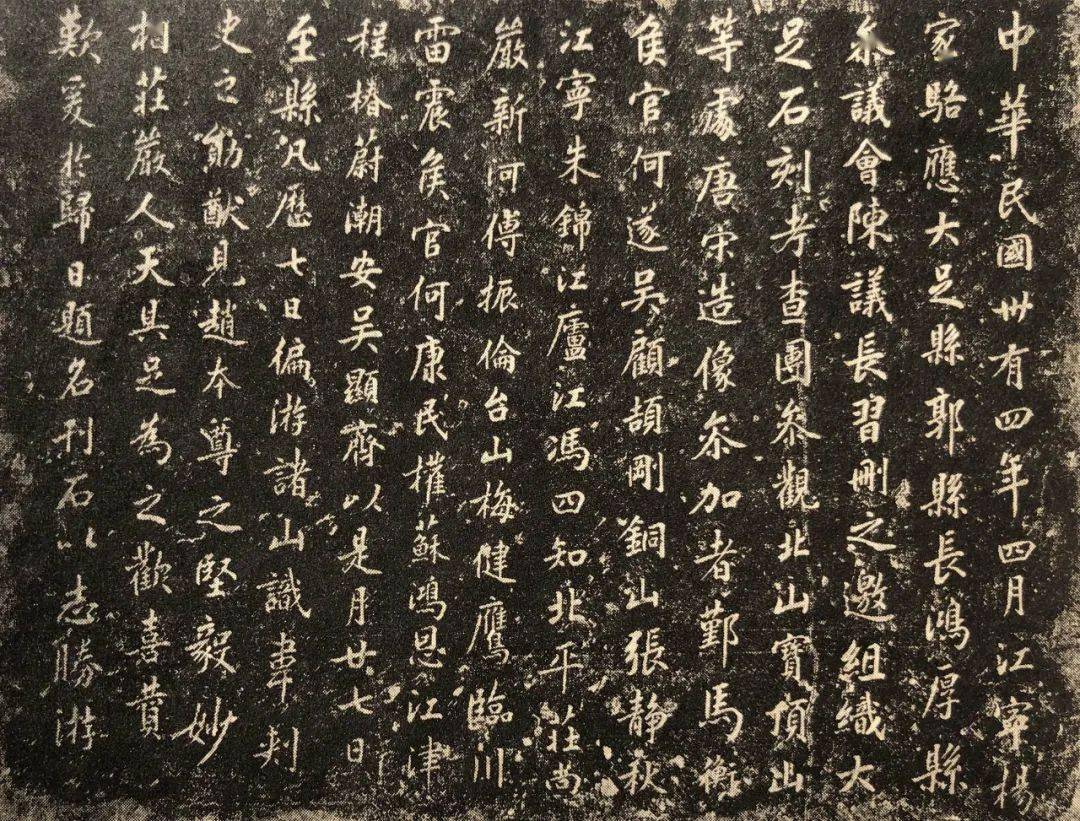 中華民國卅有四年四月江寧楊
家駱應大足縣郭縣長鴻厚縣
參議會陳議長習刪之邀組織大
足石刻考查團叅觀北山寶頂山
等處唐宋造像叅加者鄞馬衡
矦官何遂吳顧頡剛銅山張靜秋
江寧朱錦江廬江馮四知北平莊尚
嚴新河傅振倫台山梅健鷹臨川
雷震矦官何康民權蘇鴻恩江津
程椿蔚潮安吳顯齊以是月廿七日
至縣凡歷七日徧游諸山識韋刺
史之勛猷見趙本尊之堅毅妙
相莊嚴人天具足為之歡喜贊
歎爰於歸日題名刊石以志勝游